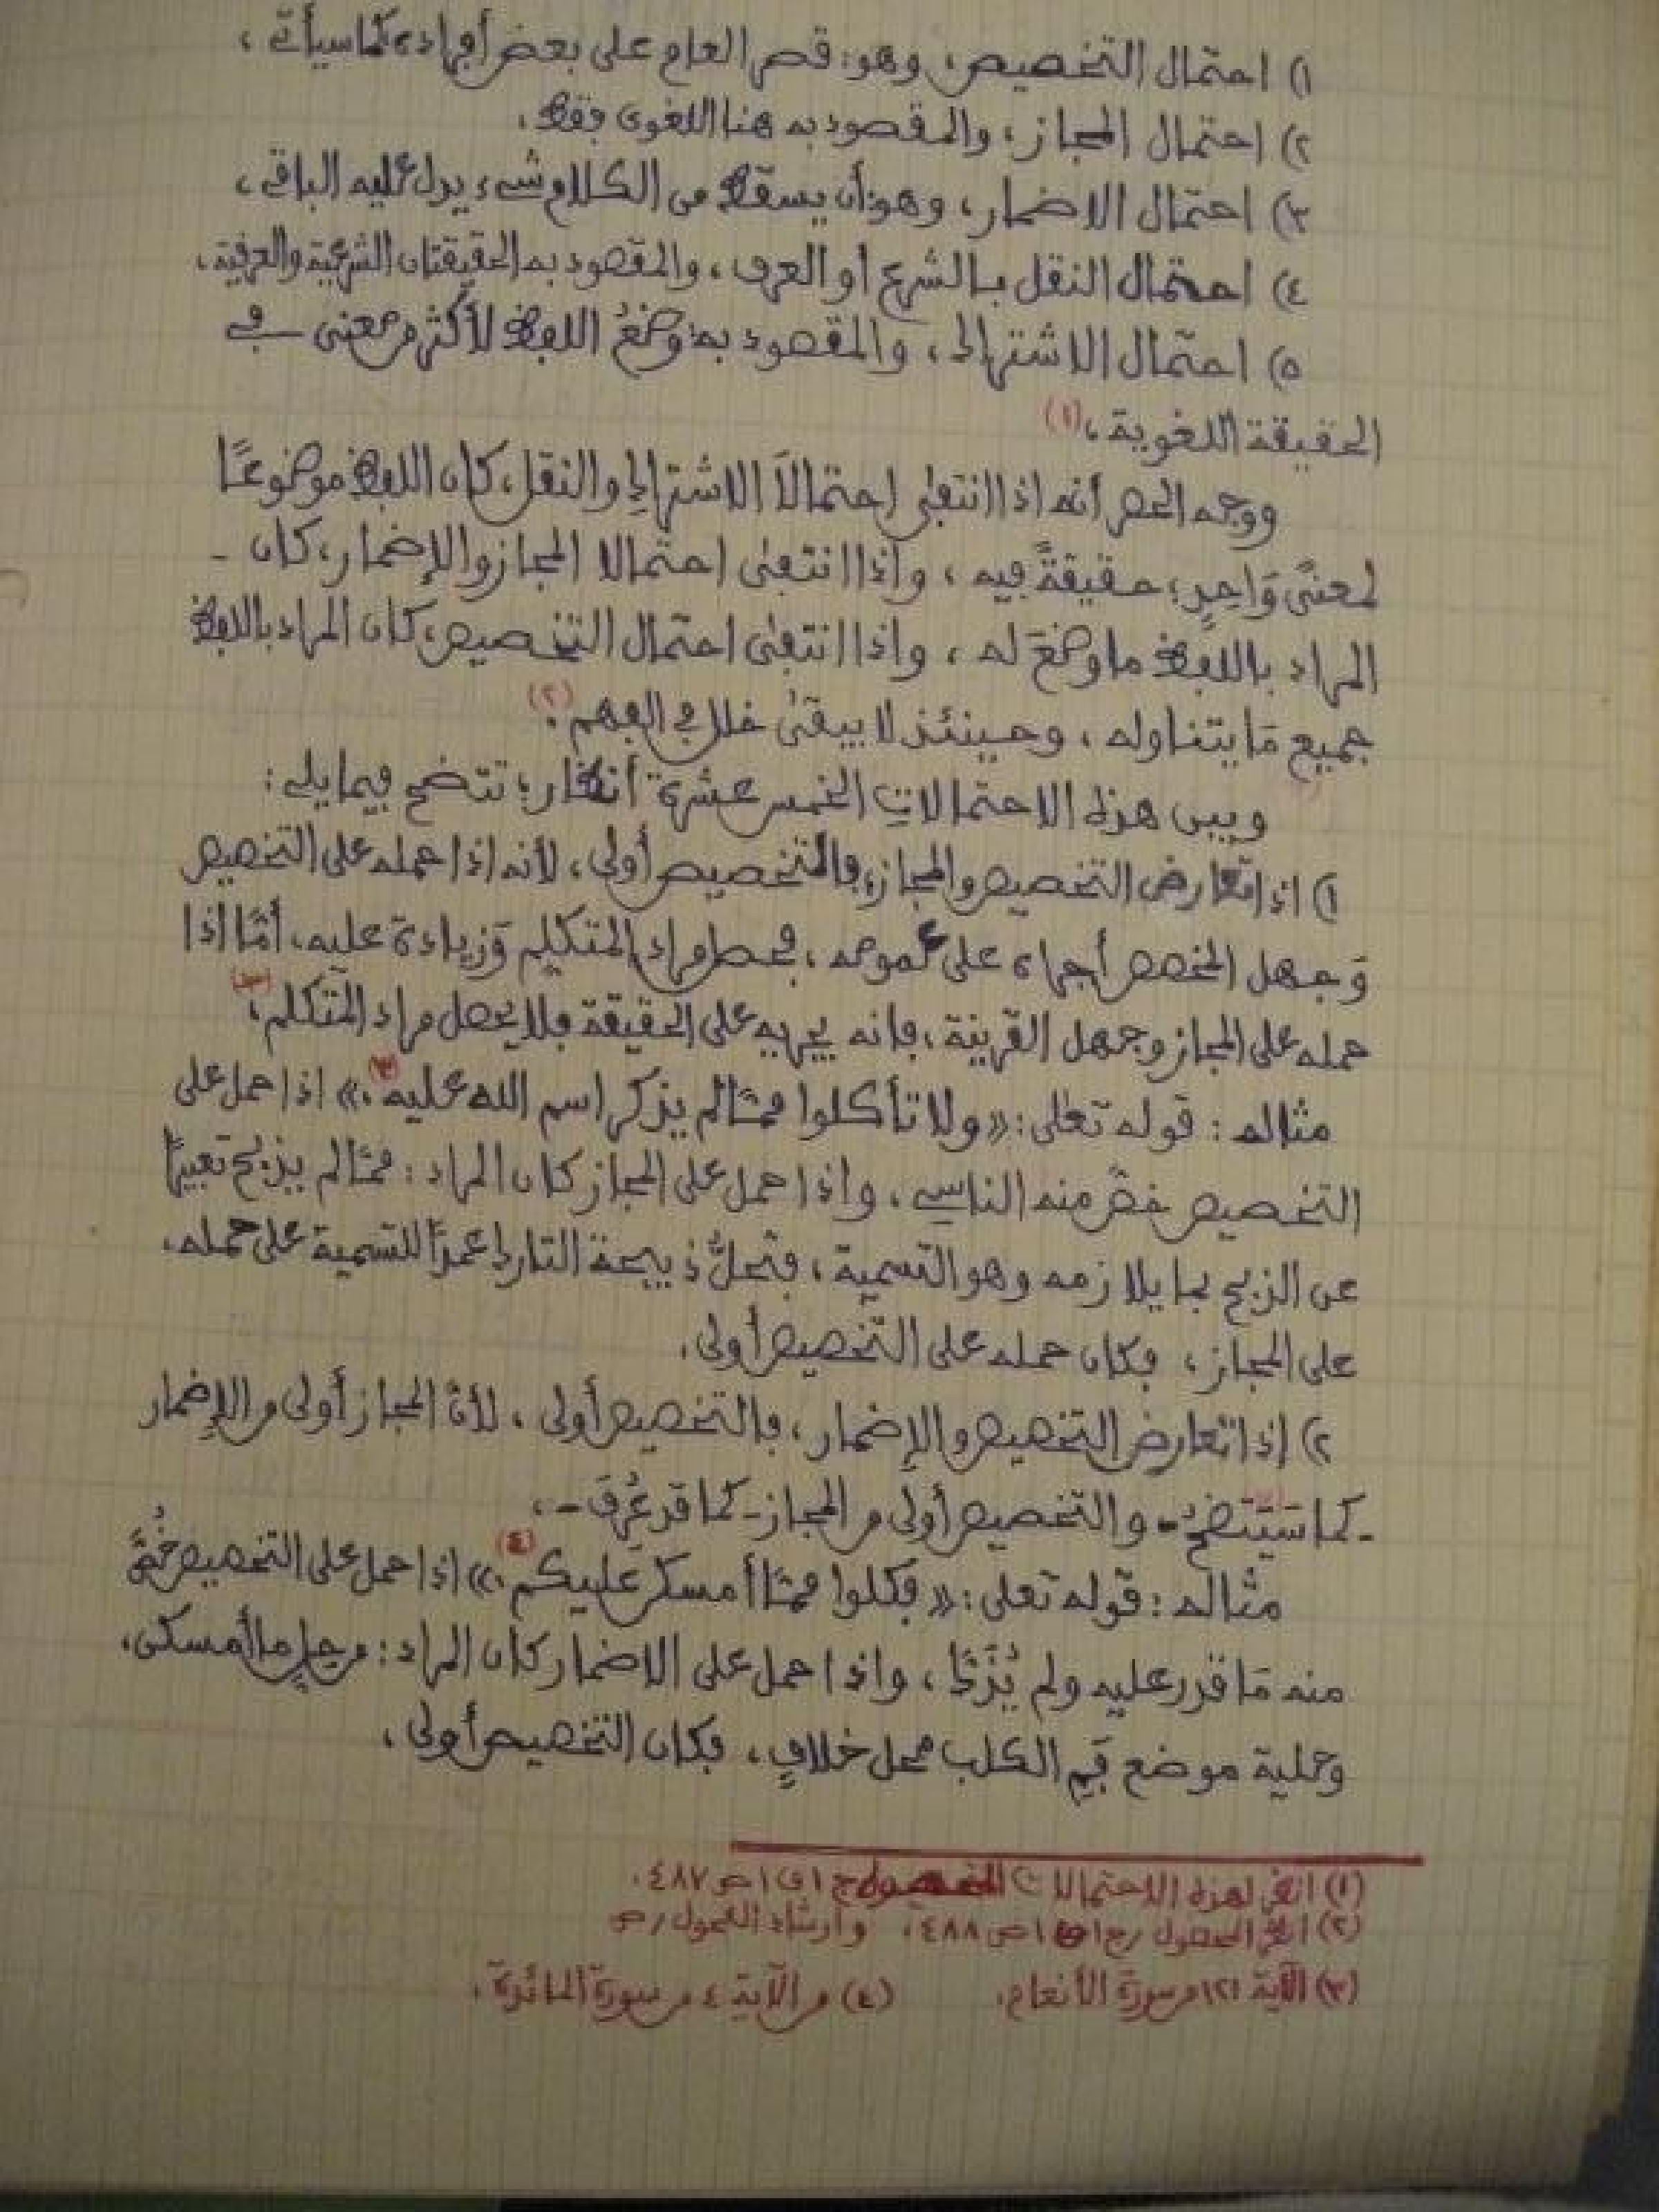 ١) احتمال التخصيص، وهو: قصر العام على بعض أفراده كما سيأتي،
٢) احتمال المجاز، والمقصود به هنا اللغوي فقط،
٣) احتمال الاضمار، وهو: أن يسقط من الكلام شيء يدل عليه الباقي،
٤) احتمال النقل بالشرع او العرف، والمقصود به الحقيقتان الشرعية والعرفية،
٥) احتمال الاشتراك، والمقصود به: وضعُ اللفظ لأكثر من معنى في
الحقيقة اللغوية،(١)
ووجه الحصر أنه اذا انتفى احتمالاَ الاشتراكِ والنقل، كان اللفظ موضوعًا
لمعنًى وَاحِدٍ؛ حقيقةً فيه، واذا انتفى احتمالا المجاز والإضمار، كان -
المراد باللفظ ما وضعَ له، واذا انتفى احتمال التخصيص، كان المراد باللفظ
جميع مَا يتناوله، وحينئذ لا يبقىٰ خلل في الفهم.(٢)
وبين هذه الاحتمالاتِ الخمس عشرةُ أنظار؛ تتضح فيما يلي:
١) اذا تعارض التخصيص والمجاز، فالتخصيص أولى، لأنه اذا حمله على التخصيص
وَجهل المخصص أجراه على عمومه، فحصل مراد المتكلم وَزيادة عليه، أمَّا اذا
حمله على المجاز وجهل القرينة، فانه يجريه على الحقيقة فلا يحصل مراد المتكلم،
مثاله : قوله تعلى: «ولا تأكلوا ممَّا لم يذكر اسم الله عليه(٣).» اذا حمل على
التخصيص خصَّ منه الناسي، واذا حمل على المجاز كان المراد : ممَّا لم يذبح تعبيرًا
عن الذبح بما يلازمه وهو التسمية، فتحلُّ ذبيحة التارك عمدًا للتسمية على حمله،
على المجاز، فكان حمله على التخصيص أولى،
٢) إذا تعارض التخصيص والإضمار، فالتخصيص أولى، لأنَّ المجاز أولى من الإضمار
-كما سَيَتضحُ- والتخصيص أولى من المجاز -كما قد عُرفَ-،
مثاله : قوله تعلى: «فكلوا ممَّا أمسكن عليكم(٤).» اذا حمل على التخصيص خُصَّ
منه مَا قدر عليه ولم يُذَكَّ، واذا حمل على الاضمار كان المراد: من حِلِ ما أمسكن،
وحلية موضع فَمِ الكلب محل خلافٍ، فكان التخصيص أولى،
(١) انظر لهذه الاحتمالات المحصول ج١ ق١ ص٤٨٧.
(٢) انظر المحصول/ج١ ق١ ص٤٨٨، وارشاد الفحول/ص
(٣) الآية ١٢١ من سورة الأنعام، (٤) من الآية ٤ من سورة المائدة،